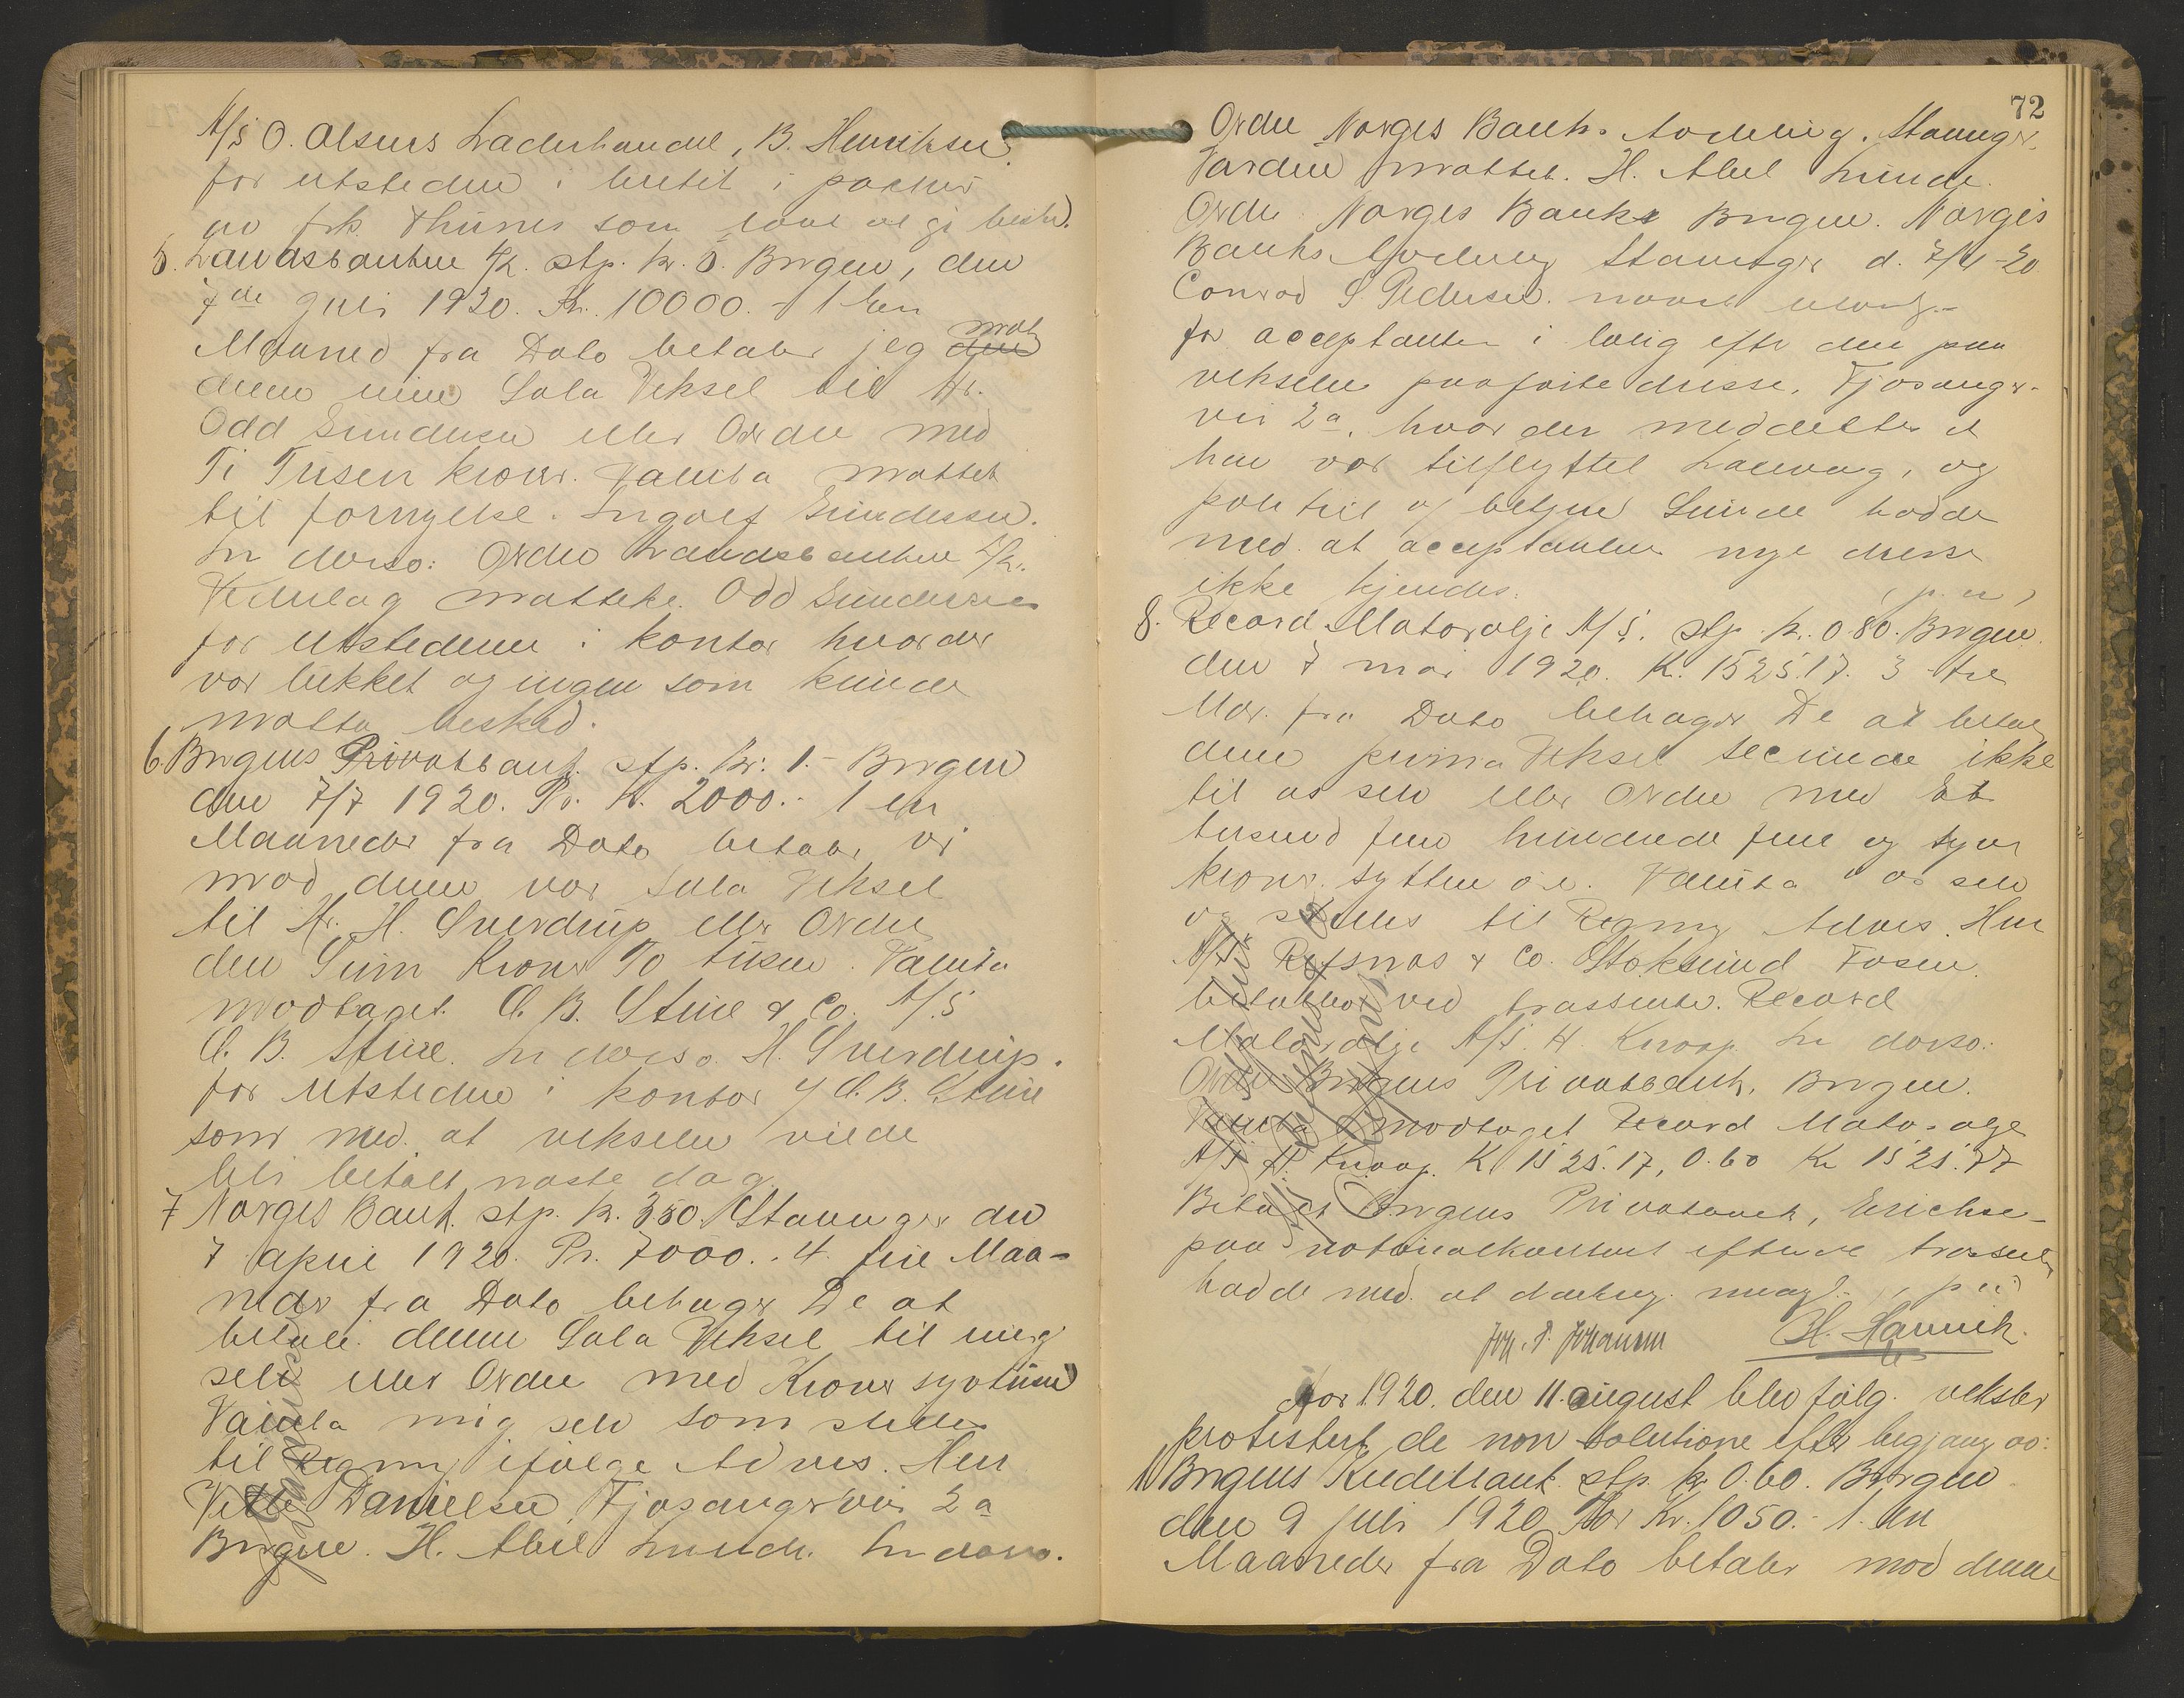 A/S O. Olsens Læderhandel, B. Henriksen.
for utstederen i butik i parken
av frk. Thunes som love at gi besk.
5. Landsbanken A/K. stp. kr. 5. Bergen, den
7de Juli 1920. Kr. 10000.- 1 En
Maaned fra Dato betaler jeg mot
denne min Sola Veksel til Hr.
Odd Gundersen eller Ordre med
Ti Tusen kroner. Valuta mottat
til fornyelse. Ingolf Gundersen.
In dorso: Ordre Landsbanken A/K.
Vederlag mottatt. Odd Gundersen
for Utstederen i kontor hvor der
var lukket og ingen som kunde
motta besked.
6. Bergens Privatbank. stp. Kr. 1.- Bergen
den 7/7 1920. Pr. K. 2000.- 1 en
Maaneder fra Dato betaler vi
mod denne vor Sola Veksel
til Hr. H. Sverdrup eller Ordre
den Sum Kroner To tusen. Valuta
modtaget. C. B. Stene & Co. A/S
C. B. Stene. In dorso. H. Sverdrup.
for Utstederen i kontor v/ C. B. Stene
som med. at vekselen vilde
bli betalt næste dag.
7 Norges Bank. stp. kr. 3.50. Stavanger den
7 april 1920. Pr. 7000.- 4 fire Maa-
neder fra Dato behager De at
betale denne Sola Veksel til mig
selv eller Ordre med Kroner syvtusen
Valuta mig selv som stilles
til Regning ifølge Advis. Herr
Vetle Danielsen, Fjøsangerveien 2a
Bergen. H. Abel Lunde. In dorso.
72
Ordre Norges Banks Avdeling. Stavanger.
Værdien mottat. H. Abel Lunde.
Ordre Norges Bank Bergen. Norges
Banks Avdeling Stavanger d. 7/4-20
Conrad S. Pedersen.
for acceptanten i bolig efter den paa
vekselen paaførte adresse, Fjøsanger-
vei 2a, hvor der meddeltes at
han var tilflyttet Laksevaag, og
politi og betjent Lunde hadde
med. at acceptantens nye adresse
ikke kjendes.
8. Record Motorolje A/S. stp. kr. 0.80. Bergen.
den 7 mai 1920. K. 1525.17. 3 tre
Mdr. fra Dato behager De at betale
denne prima Veksel secunda ikke
til os selv eller Ordre med Et
tusend fem hundrede fem og tyve
kroner sytten øre. Valuta i os selv
og stilles til Regning Advis. Herr
A/S Refsnæs & Co. Stoksund Fosen.
betalbar ved trassenten. Record
Motorolje A/S. H. Knoop. In dorso:
Ordre Bergens Privatbank, Bergen.
Valuta modtaget Record Motorolje
A/S H. Knoop. K. 1525.17, 0.60 Kr 1525.77
Betalt Bergens Privatbank, Erichsen
paa notarialkontoret efterat trassenten
hadde med. at dækning mangl.
Joh. P. Johannsen H. Hannik.
Aar 1920. den 11. august blev følg. veksler
protestert de non solutione efter begjæring av:
1 Bergens Kreditbank. stp. kr 0.60. Bergen
den 9 juli 1920 For Kr. 1050.- 1. en
Maaneder fra Dato betaler mod denne